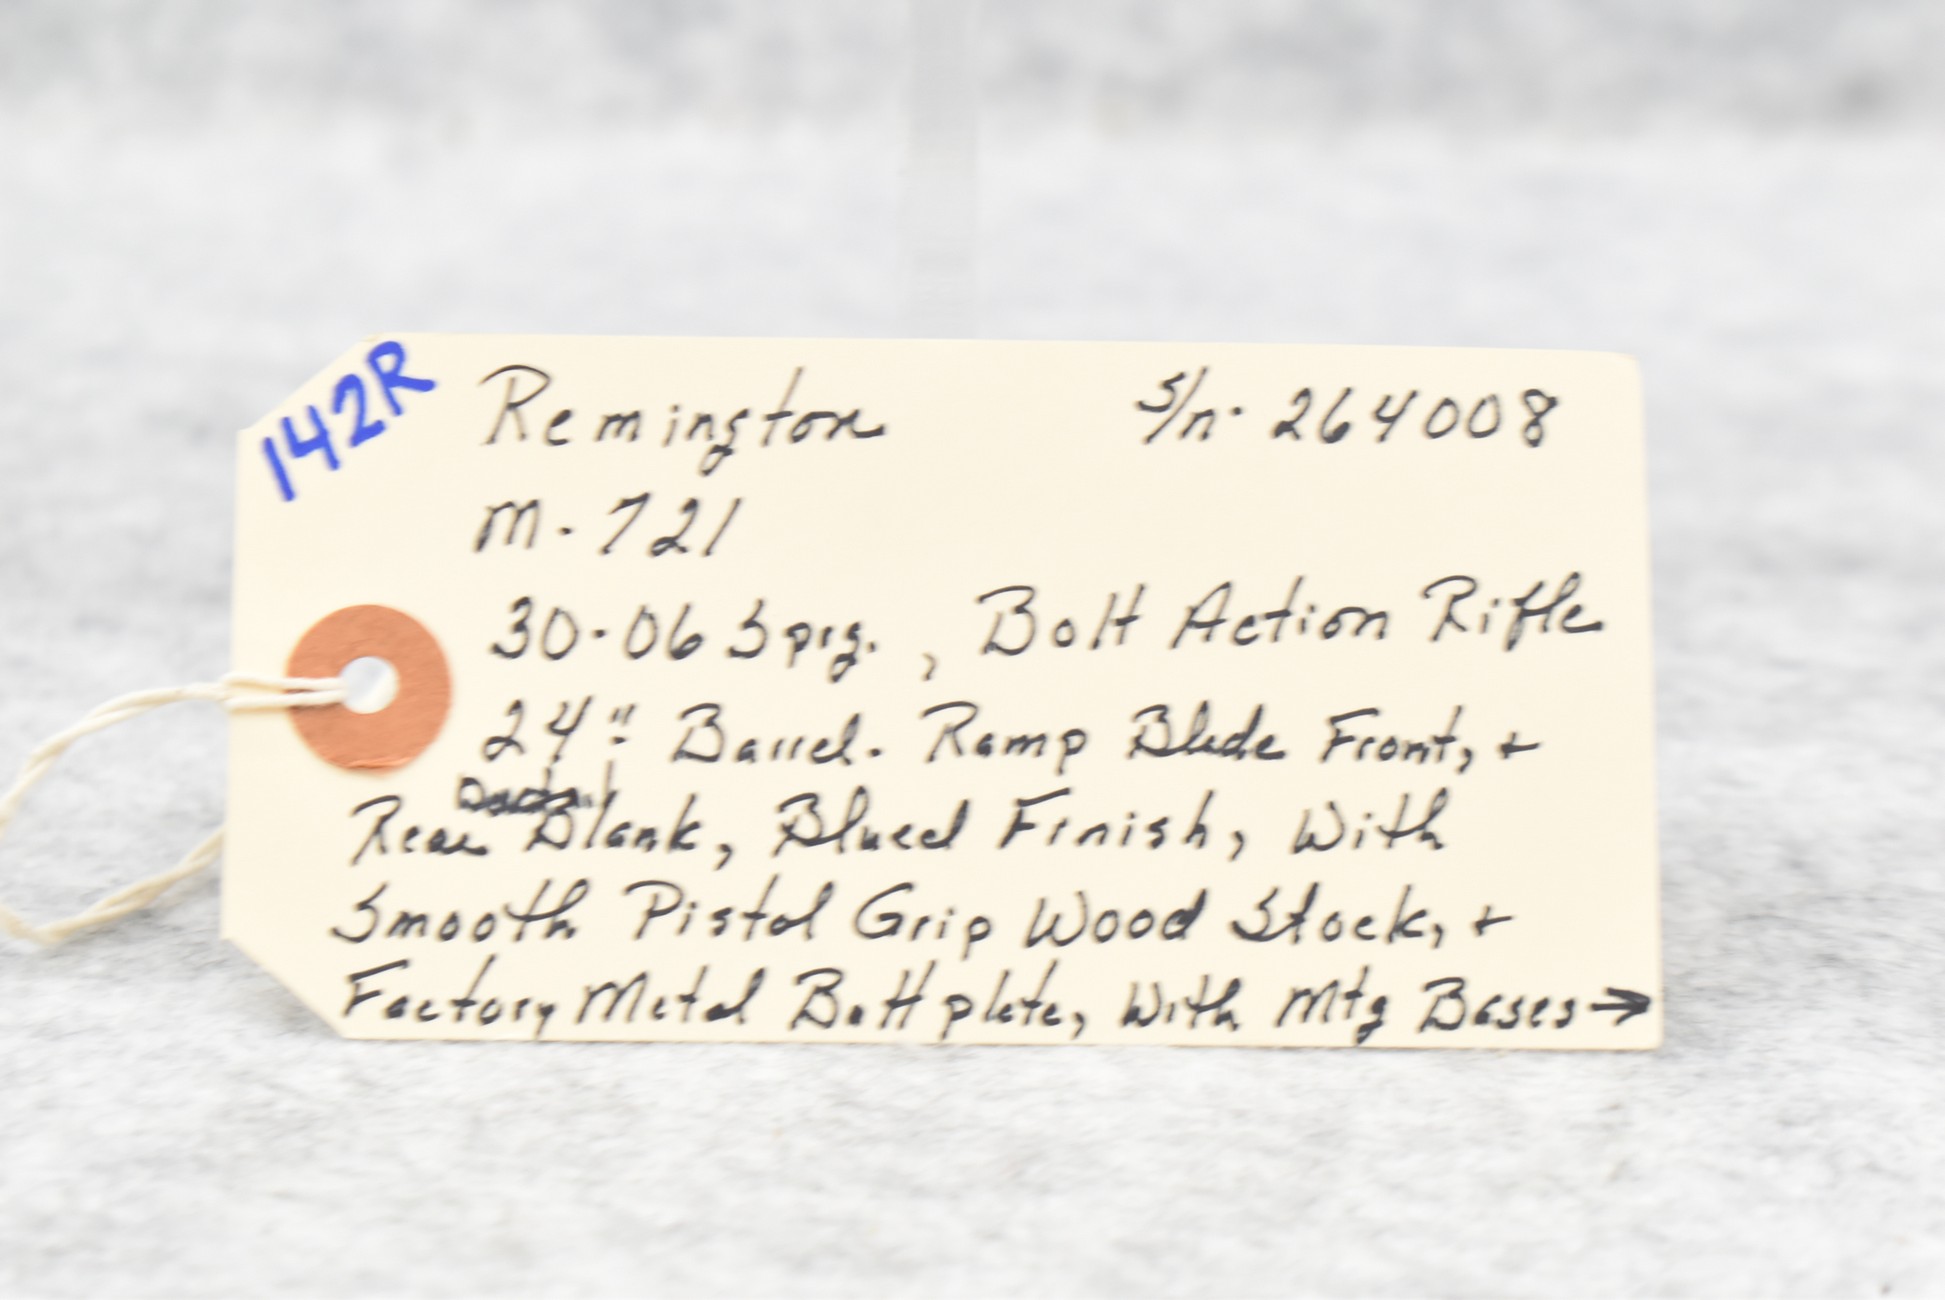 142R
Remington S/n. 264008
M-721
30-06 Sprg., Bolt Action Rifle
24" Barrel. Ramp Blade Front, +
Rear Blank, Blued Finish, With
Smooth Pistol Grip Wood Stock, +
Factory Metal Buttplate, With Mtg Bases→